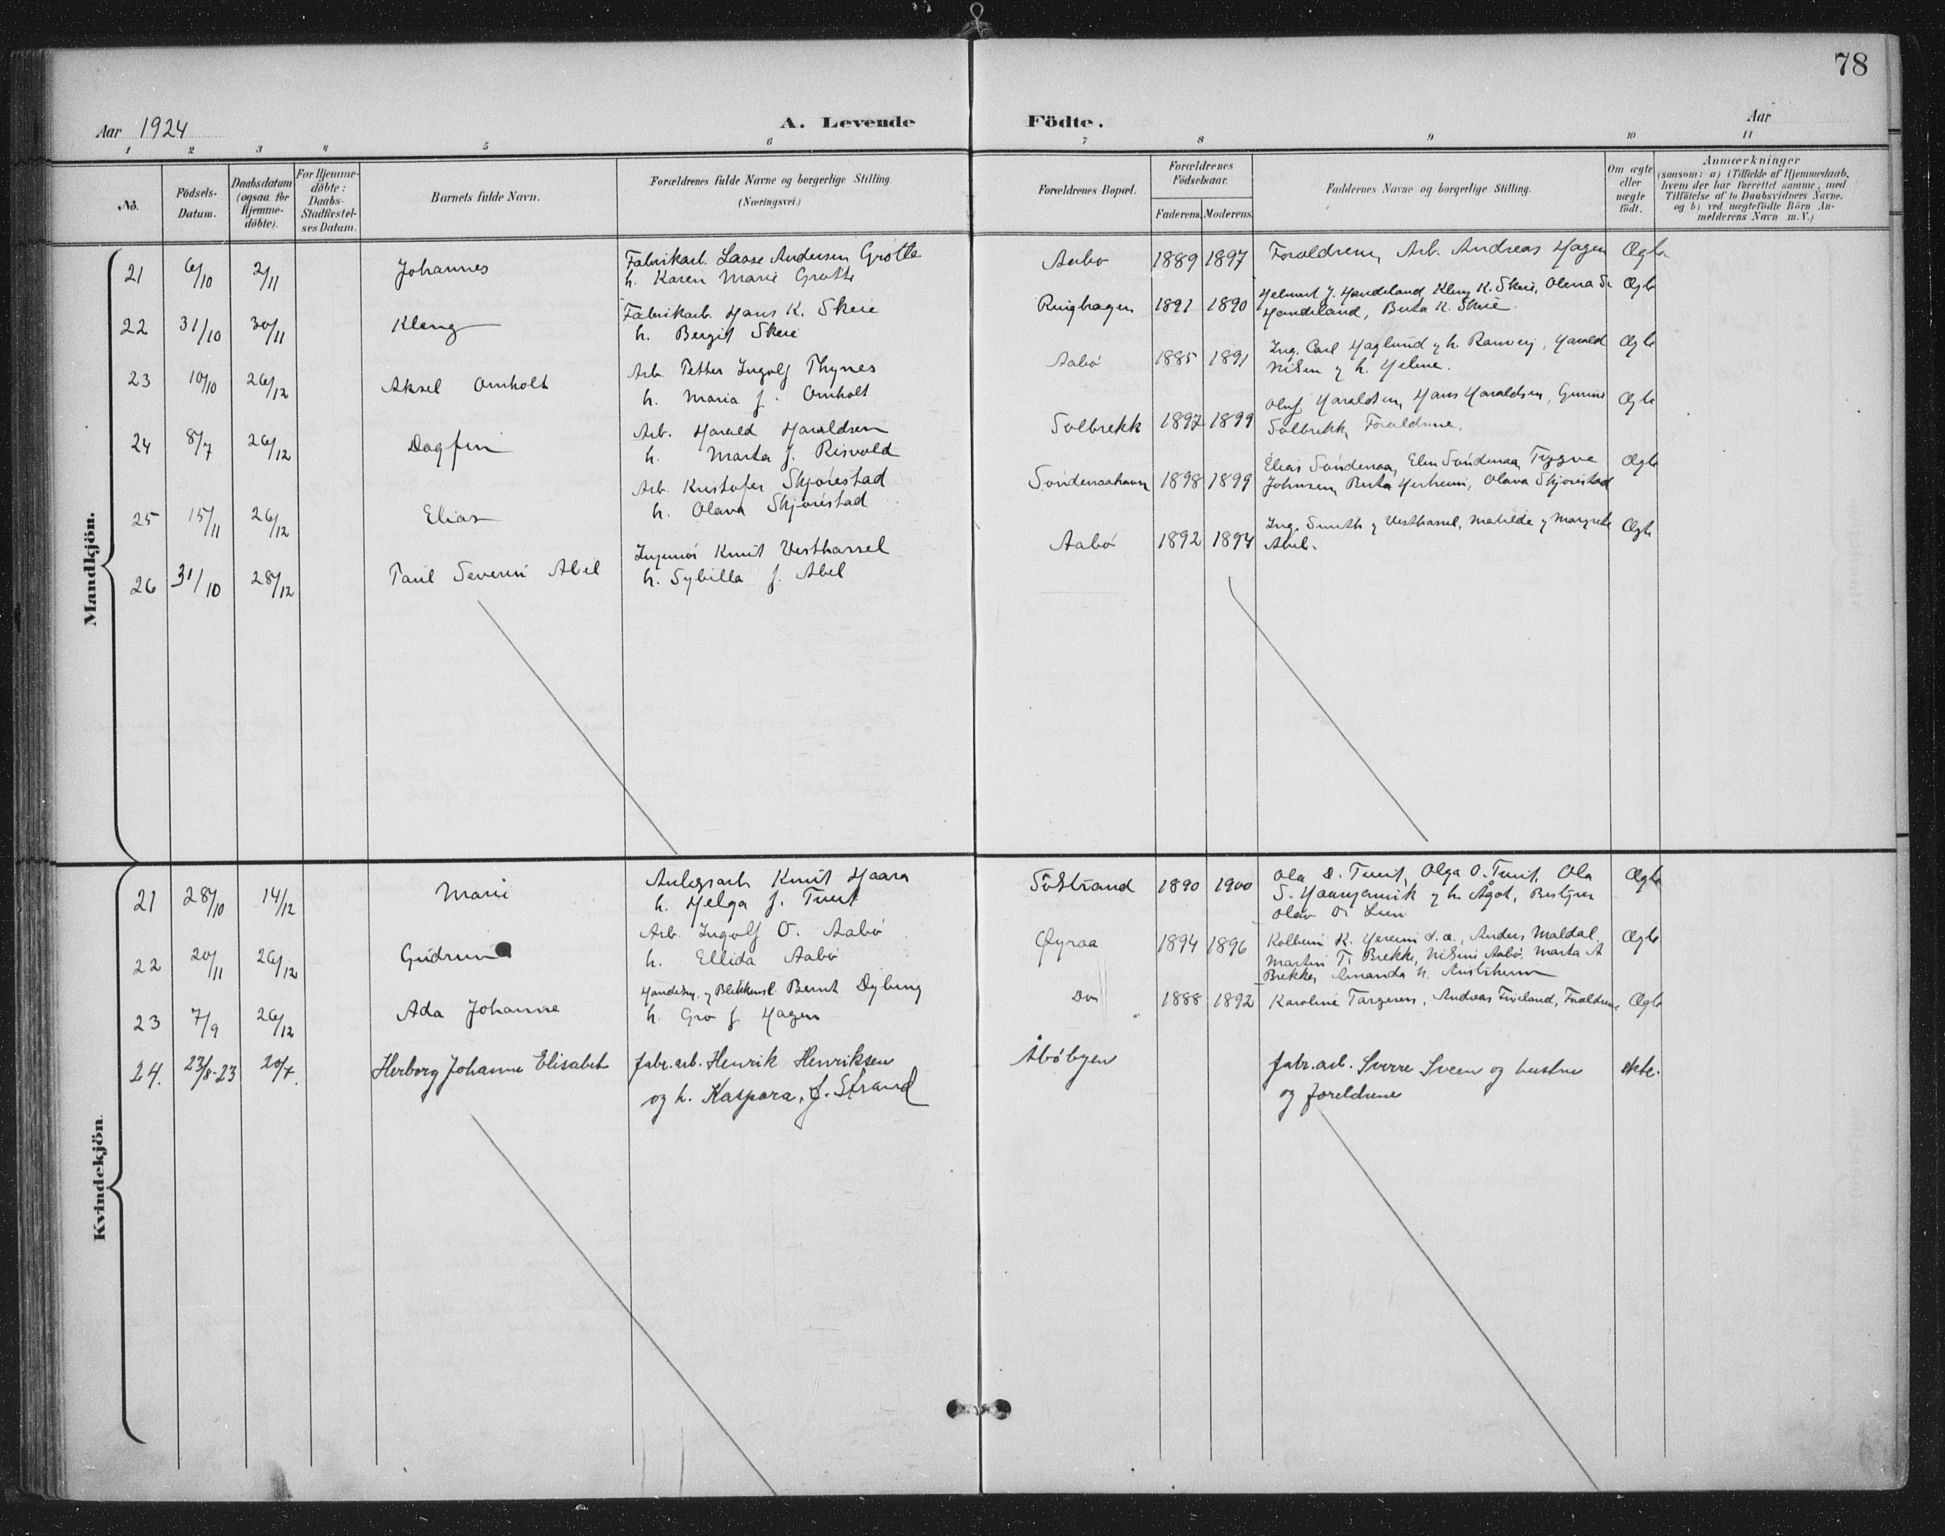 78
Aar 1924
A. Levende
Födte.
Aar
1 2 3 4 5 6 7 8 9 10 11
No.
Födsels-
Datum.
Daabsdatum
(ogsaa for
Hjemme-
döbte).
For Hjemme-
döbte:
Daabs-
Stadfæstel-
ses Datum.
Barnets fulde Navn.
Forældrenes fulde Navne og borgerlige Stilling.
(Næringsvei.)
Forældrenes Bopæl.
Forældrenes
Födselsaar.
Faderens. Moderens.
Faddernes Navne og borgerlige Stilling.
Om ægte
eller
uægte
födt.
Anmærkninger
(saasom: a) i Tilfælde af Hjemmedaab,
hvem der har forrettet samme, med
Tilföielse af to Daabsvidners Navne.
og b) ved uægtefödte Börn An-
melderens Navn m. V.)
Mandkjön.
21 6/10 2/11 Johannes
Fabrikarb. Lasse Andersen Grotte
h. Karen Marie Grotte
Aabø 1889 1897 Foraldrene, Arb. Andreas Hagen Ægte
22 31/10 30/11 Kleng
Fabrikarb. Hans K. Skeie
h. Bergit Skeie
Ringhagen 1891 1890
Helmert J. Handeland Kleng K. Skeie, Olena S.
Handeland, Berta K. Skeie. Ægte
23 10/10 26/12 Aksel Omholt
Arb. Petter Ingolf Thynes
h. Maria f. Omholt
Aabø 1885 1891
Ing. Carl Haglund og h. Ranveig, Harald
Nilsen og h. Helene. Ægte
24 8/7 26/12 Dagfin
Arb. Harald Haraldsen
h. Marta f. Risvold
Solbrekk 1897 1899
Oluf Haraldsen, Hans Haraldsen, Gunne
Solbrekk, Foraldrene. Ægte
25 15/11 26/12 Elias
Arb. Kristofer Skjørestad
h. Olava Skjørestad
Søndenaahavn 1898 1899
Elias Søndenaa, Elen Søndenaa, Trygve
Johnsen, Berta Herheim, Olava Skjørestad Ægte
26 31/10 28/12 Paul Severin Abel
Ingeniør Knut Vesthassel
h. Sybilla f. Abel
Aabø 1892 1894
Ing. Smith og Vesthassel, Matilde og Margrete
Abel. Ægte
Kvindekjön.
21 28/10 14/12 Marie
Anlegsarb. Knut Haara
h. Helga f. Tveit
Søstrand 1890 1900
Ola D. Tveit, Olga O. Tveit, Ola
S. og h. Ågot, Bestyrer
Olav O. Lien Ægte
22 20/11 26/12 Gudrun
Arb. Ingolf O. Aabø
h. Ellida Aabø
Øyraa 1894 1896
Kolbein K. Hereim d.a., Anders Maldal,
Martin T. Brekke, Nilsine Aabø, Marta A
Brekke, Amanda N. Austrheim Ægte
23 7/9 26/12 Ada Johanne
Handelsm. og Blikkensl. Bernt Dybing
h. Gro f. Hagen
Do 1888 1892 Karoline Targersen, Andreas Fiveland, Foraldrene Ægte
24. 23/8-23 20/7. Herborg Johanne Elisabet
fabr.arb. Henrik Henriksen
og h. Kaspara, f. Strand
Åbøbyen
fabr.arb. Sverre Sveen og hustru
og foreldrene ekte.